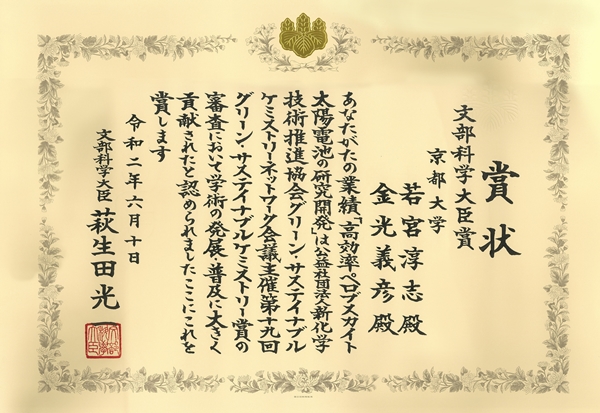 賞状
文部科学大臣賞
京都大学
若宮淳志殿
金光義彦殿
あなたがたの業績「高効率ペロブスカイト
太陽電池の研究開発」は公益社団法人新化学
技術推進協会グリーン・サステイナブル
ケミストリーネットワーク会議主催第十九回
グリーン・サステイナブルケミストリー賞の
審査において学術の発展・普及に大きく
貢献されたと認められましたここにこれを
賞します
令和二年六月十日
文部科学大臣 萩生田光